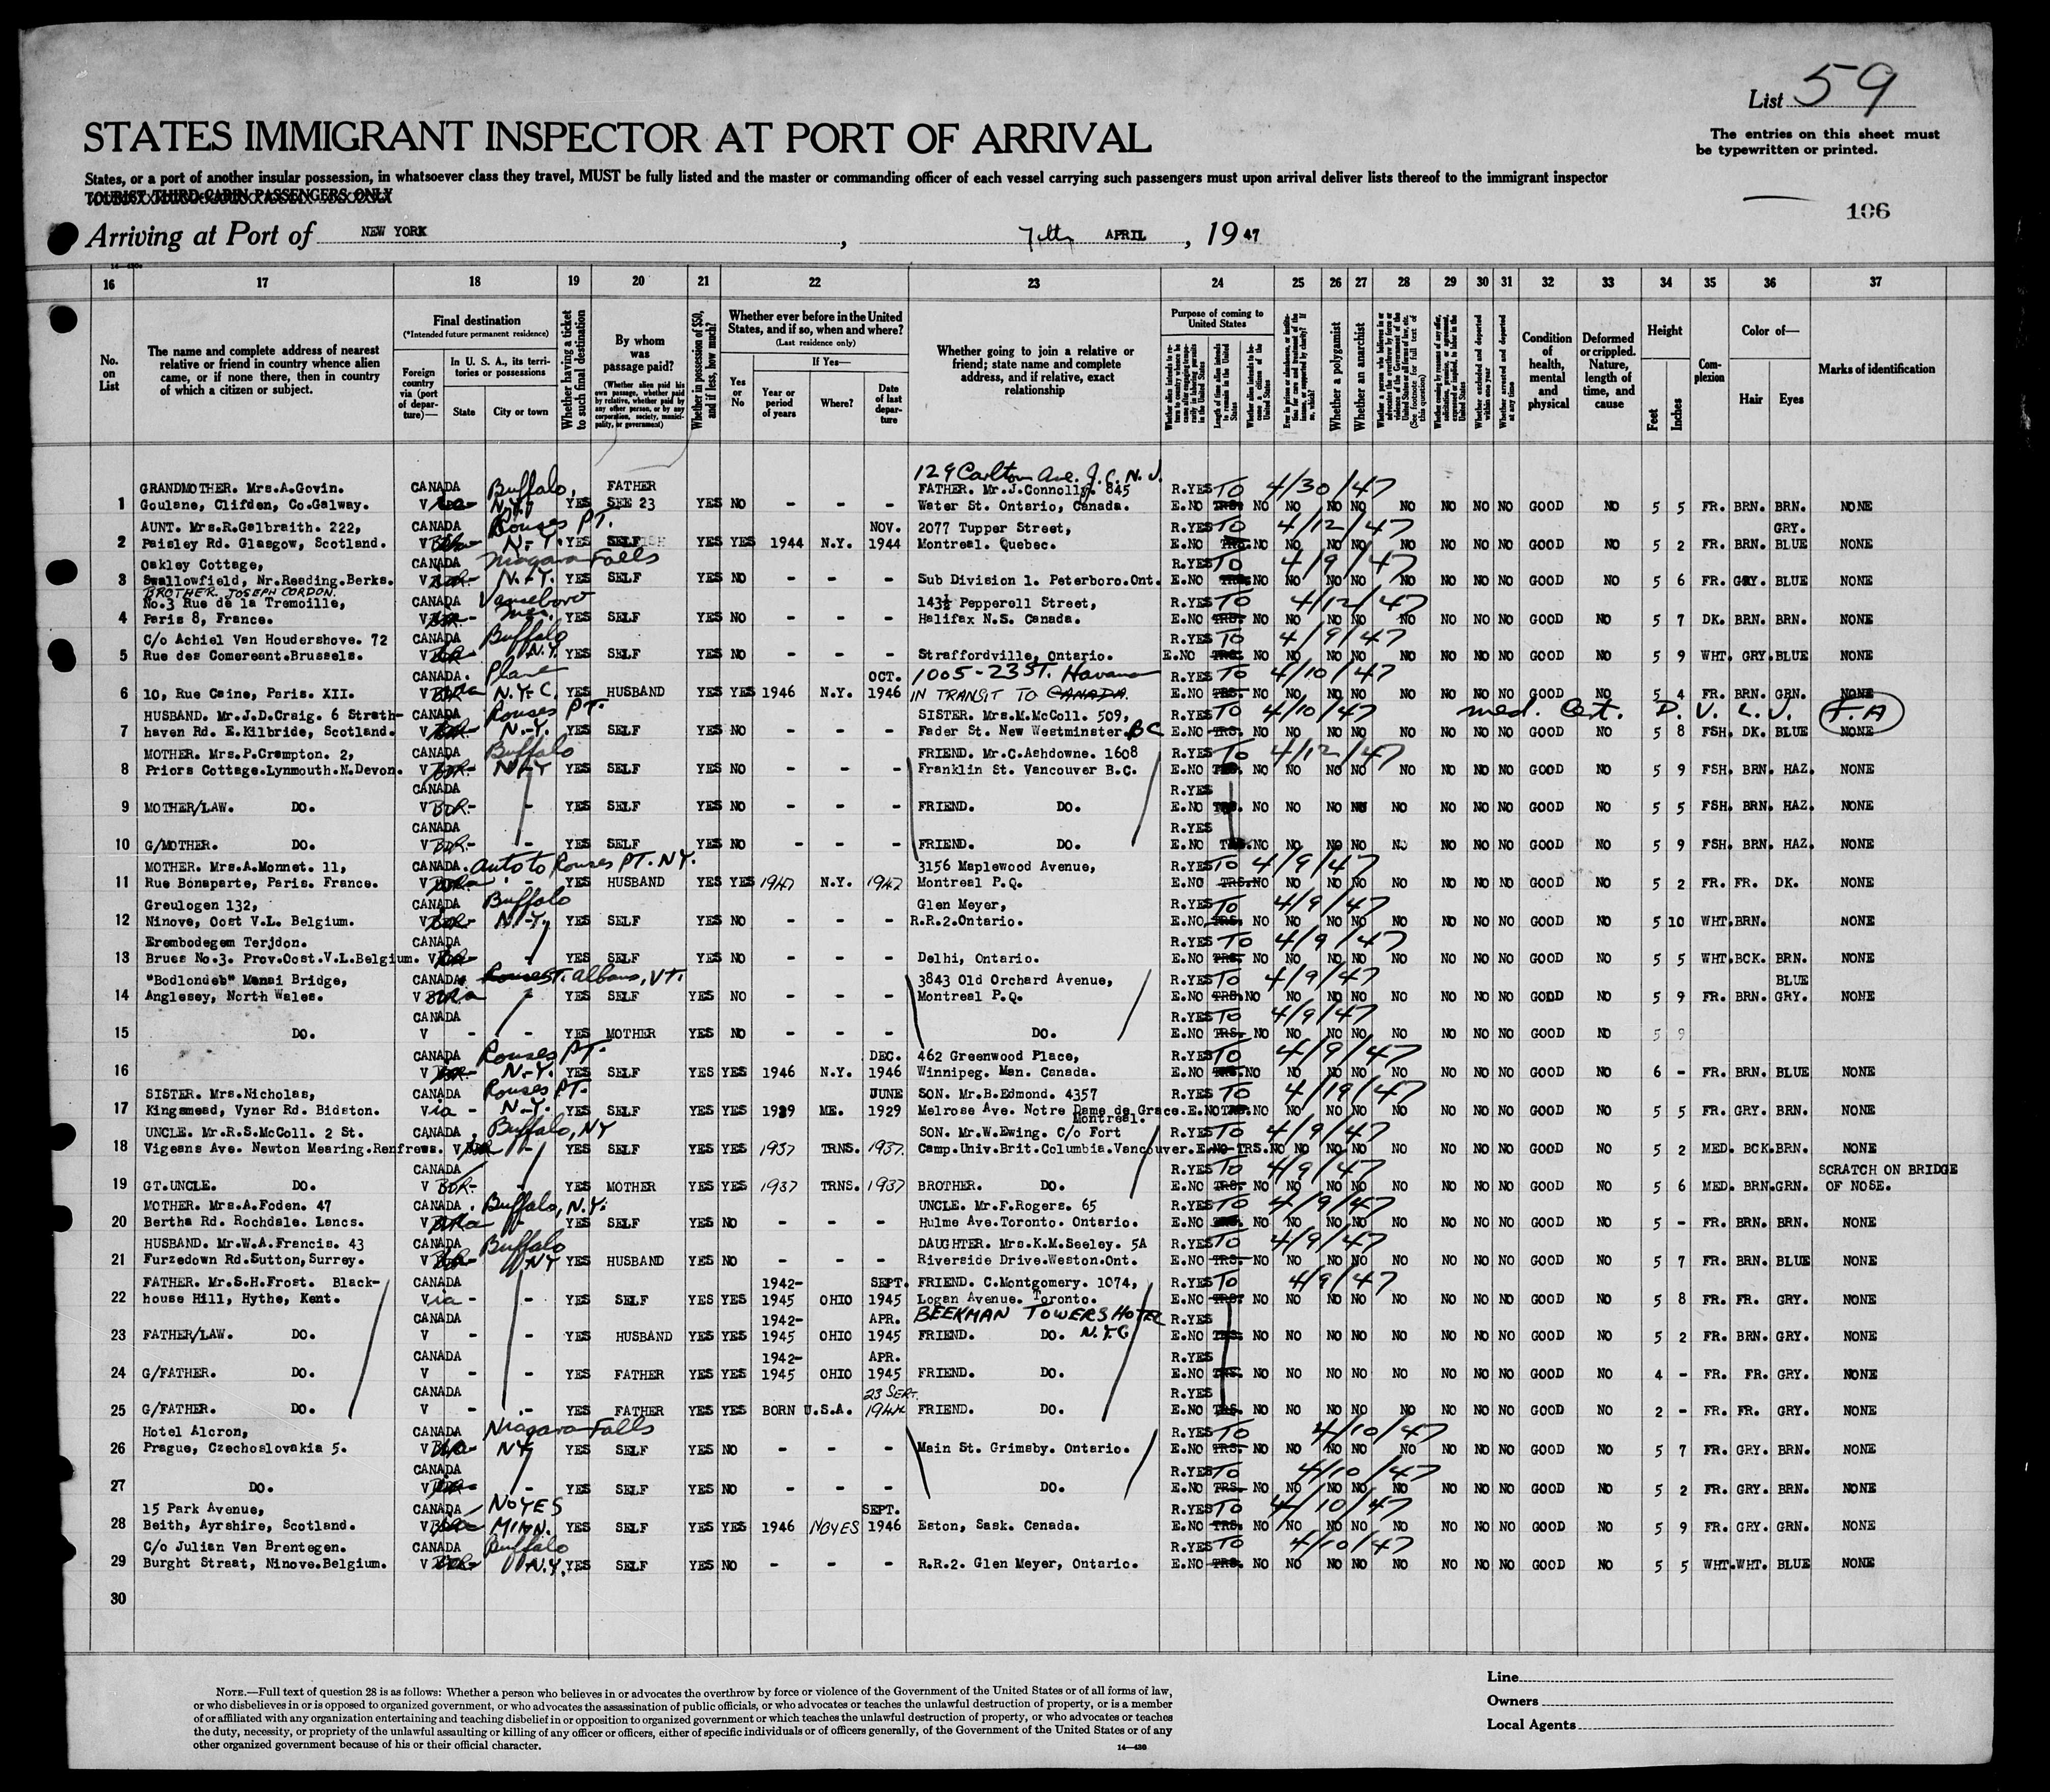 List 59
STATES IMMIGRANT INSPECTOR AT PORT OF ARRIVAL
The entries on this sheet must
be typewritten or printed.
States, or a port of another insular possession, in whatsoever class they travel, MUST be fully listed and the master or commanding officer of each vessel carrying such passengers must upon arrival deliver lists thereof to the immigrant inspector
TOURIST THIRD CABIN PASSENGERS ONLY
106
Arriving at Port of NEW YORK, 7th APRIL, 1947
16 17 18 19 20 21 22 23 24 25 26 27 28 29 30 31 32 33 34 35 36 37
No. on List
The name and complete address of nearest relative or friend in country whence alien came, or if none there, then in country of which a citizen or subject.
Final destination
(*Intended future permanent residence)
Foreign country via (port of departure)—
In U. S. A., its territories or possessions
State
City or town
Whether having a ticket to such final destination
By whom was passage paid?
(Whether alien paid his own passage, whether paid by relative, whether paid by any other person, or by any corporation, society, municipality, or government)
Whether in possession of $50, and if less, how much?
Whether ever before in the United States, and if so, when and where?
(Last residence only)
Yes or No
If Yes—
Year or period of years
Where?
Date of last departure
Whether going to join a relative or friend; state name and complete address, and if relative, exact relationship
Purpose of coming to United States
Length of time alien intends to remain in the United States
Whether alien intends to become a citizen of the United States
Whether a polygamist
Whether an anarchist
Whether excluded and deported within one year
Whether arrested and deported at any time
Condition of health, mental and physical
Deformed or crippled. Nature, length of time, and cause
Height
Feet
Inches
Complexion
Color of—
Hair
Eyes
Marks of identification
129 Carlton Ave. J.C. N.J.
GRANDMOTHER. Mrs.A.Govin. CANADA Buffalo, FATHER FATHER. Mr.J.Connolly. 845 R.YES TO 4/30/47
1 Goulane, Clifden, Co.Galway. V N.Y. YES SEE 23 YES NO - - - Water St. Ontario, Canada. E.NO TRS. NO NO NO NO NO NO NO NO GOOD NO 5 5 FR. BRN. BRN. NONE
AUNT. Mrs.R.Galbraith. 222, CANADA Rouses PT. NOV. 2077 Tupper Street, R.YES TO 4/12/47 GRY.
2 Paisley Rd. Glasgow, Scotland. V N.-Y. YES SELF YES YES 1944 N.Y. 1944 Montreal. Quebec. E.NO TRS. NO NO NO NO NO NO NO NO GOOD NO 5 2 FR. BRN. BLUE NONE
Oakley Cottage, CANADA Niagara Falls R.YES TO 4/9/47
3 Swallowfield, Nr.Reading.Berks. V N.-Y. YES SELF YES NO - - - Sub Division 1. Peterboro.Ont. E.NO TRS. NO NO NO NO NO NO NO NO GOOD NO 5 6 FR. GRY. BLUE NONE
BROTHER. JOSEPH CORDON.
No.3 Rue de la Tremoille, CANADA Vanceboro 143½ Pepperell Street, R.YES TO 4/12/47
4 Paris 8, France. V BDR- Me. YES SELF YES NO - - - Halifax N.S. Canada. E.NO TRS. NO NO NO NO NO NO NO NO GOOD NO 5 7 DK. BRN. BRN. NONE
C/o Achiel Van Houdershove. 72 CANADA Buffalo R.YES TO 4/9/47
5 Rue des Comereant.Brussels. V BDR N.Y. YES SELF YES NO - - - Straffordville, Ontario. E.NO TRS. NO NO NO NO NO NO NO NO GOOD NO 5 9 WHT. GRY. BLUE NONE
CANADA. Plane OCT. 1005-23 ST. Havana R.YES TO 4/10/47
6 10, Rue Caine, Paris. XII. V N.Y.C. YES HUSBAND YES YES 1946 N.Y. 1946 IN TRANSIT TO CANADA. E.NO TRS. NO NO NO NO NO NO NO NO GOOD NO 5 4 FR. BRN. GRN. NONE
HUSBAND. Mr.J.D.Craig. 6 Strath- CANADA Rouses PT. SISTER. Mrs.M.McColl. 509, R.YES TO 4/10/47 med. Cert. D. V. L. J. F.A
7 haven Rd. E.Kilbride, Scotland. V N.-Y. YES SELF YES NO - - - Fader St. New Westminster. BC E.NO TRS. NO NO NO NO NO NO NO NO GOOD NO 5 8 FSH. DK. BLUE NONE
MOTHER. Mrs.P.Crampton. 2, CANADA Buffalo FRIEND. Mr.C.Ashdowne. 1608 R.YES TO 4/12/47
8 Priors Cottage.Lynmouth.N.Devon. V BDR- N-Y YES SELF YES NO - - - Franklin St. Vancouver B.C. E.NO TRS. NO NO NO NO NO NO NO NO GOOD NO 5 9 FSH. BRN. HAZ. NONE
CANADA R.YES
9 MOTHER/LAW. DO. V BDR- - YES SELF YES NO - - - FRIEND. DO. E.NO TRS. NO NO NO NO NO NO NO NO GOOD NO 5 5 FSH. BRN. HAZ. NONE
CANADA R.YES
10 G/MOTHER. DO. V BDR- - YES SELF YES NO - - - FRIEND. DO. E.NO TRS. NO NO NO NO NO NO NO NO GOOD NO 5 9 FSH. BRN. HAZ. NONE
MOTHER. Mrs.A.Monnet. 11, CANADA. Auto to Rouses PT. N.Y. 3156 Maplewood Avenue, R.YES TO 4/9/47
11 Rue Bonaparte, Paris. France. V - YES HUSBAND YES YES 1947 N.Y. 1947 Montreal P.Q. E.NO TRS. NO NO NO NO NO NO NO NO GOOD NO 5 2 FR. FR. DK. NONE
Greulogen 132, CANADA Buffalo Glen Meyer, R.YES TO 4/9/47
12 Ninove, Oost V.L. Belgium. V BDR- N.-Y. YES SELF YES NO - - - R.R.2.Ontario. E.NO TRS. NO NO NO NO NO NO NO NO GOOD NO 5 10 WHT. BRN. NONE
Erembodegem Terjdon. CANADA R.YES TO 4/9/47
13 Brues No.3. Prov.Oost.V.L.Belgium. V BDR- - YES SELF YES NO - - - Delhi, Ontario. E.NO TRS. NO NO NO NO NO NO NO NO GOOD NO 5 5 WHT. BCK. BRN. NONE
"Bodlondeb" Menai Bridge, CANADA. St. Albans, VT. 3843 Old Orchard Avenue, R.YES TO 4/9/47 BLUE
14 Anglesey, North Wales. V - YES SELF YES NO - - - Montreal P.Q. E.NO TRS. NO NO NO NO NO NO NO NO GOOD NO 5 9 FR. BRN. GRY. NONE
CANADA R.YES TO 4/9/47
15 DO. V - - YES MOTHER YES NO - - - DO. E.NO TRS. NO NO NO NO NO NO NO NO GOOD NO 5 9
CANADA Rouses PT. DEC. 462 Greenwood Place, R.YES TO 4/9/47
16 V BDR- N.-Y. YES SELF YES YES 1946 N.Y. 1946 Winnipeg. Man. Canada. E.NO TRS. NO NO NO NO NO NO NO NO GOOD NO 6 - FR. BRN. BLUE NONE
SISTER. Mrs.Nicholas, CANADA Rouses PT. JUNE SON. Mr.B.Edmond. 4357 R.YES TO 4/19/47
17 Kingsmead, Vyner Rd. Bidston. Via - N-Y. YES SELF YES YES 1929 ME. 1929 Melrose Ave. Notre Dame de Grace. Montreal. E.NO TRS. NO NO NO NO NO NO NO NO GOOD NO 5 5 FR. GRY. BRN. NONE
UNCLE. Mr.R.S.McColl. 2 St. CANADA. Buffalo, NY SON. Mr.W.Ewing. C/o Fort R.YES TO 4/9/47
18 Vigeans Ave. Newton Mearing.Renfrews. V - YES SELF YES YES 1937 TRNS. 1937. Camp.Univ.Brit.Columbia.Vancouver. E.NO TRS. NO NO NO NO NO NO NO NO GOOD NO 5 2 MED. BCK. BRN. NONE
CANADA R.YES TO 4/9/47 SCRATCH ON BRIDGE
19 GT.UNCLE. DO. V BDR- - YES MOTHER YES YES 1937 TRNS. 1937 BROTHER. DO. E.NO TRS. NO NO NO NO NO NO NO NO GOOD NO 5 6 MED. BRN. GRN. OF NOSE.
MOTHER. Mrs.A.Foden. 47 CANADA. Buffalo, N.Y. UNCLE. Mr.F.Rogers. 65 R.YES TO 4/9/47
20 Bertha Rd. Rochdale. Lancs. V - YES SELF YES NO - - - Hulme Ave.Toronto. Ontario. E.NO TRS. NO NO NO NO NO NO NO NO GOOD NO 5 - FR. BRN. BRN. NONE
HUSBAND. Mr.W.A.Francis. 43 CANADA Buffalo DAUGHTER. Mrs.K.M.Seeley. 5A R.YES TO 4/9/47
21 Furzedown Rd.Sutton,Surrey. V NY YES HUSBAND YES NO - - - Riverside Drive.Weston.Ont. E.NO TRS. NO NO NO NO NO NO NO NO GOOD NO 5 7 FR. BRN. BLUE NONE
FATHER. Mr.S.H.Frost. Black- CANADA 1942- SEPT. FRIEND. C.Montgomery. 1074, R.YES TO 4/9/47
22 house Hill, Hythe, Kent. Via - - YES SELF YES YES 1945 OHIO 1945 Logan Avenue. Toronto. E.NO TRS. NO NO NO NO NO NO NO NO GOOD NO 5 8 FR. FR. GRY. NONE
CANADA 1942- APR. BEEKMAN TOWERS HOTEL R.YES
23 FATHER/LAW. DO. V - - YES HUSBAND YES YES 1945 OHIO 1945 FRIEND. DO. N.Y.C. E.NO TRS. NO NO NO NO NO NO NO NO GOOD NO 5 2 FR. BRN. GRY. NONE
CANADA 1942- APR. R.YES
24 G/FATHER. DO. V - - YES FATHER YES YES 1945 OHIO 1945 FRIEND. DO. E.NO TRS. NO NO NO NO NO NO NO NO GOOD NO 4 - FR. FR. GRY. NONE
CANADA 23 SEPT. R.YES
25 G/FATHER. DO. V - - YES FATHER YES YES BORN U.S.A. 1944 FRIEND. DO. E.NO TRS. NO NO NO NO NO NO NO NO GOOD NO 2 - FR. FR. GRY. NONE
Hotel Alcron, CANADA Niagara Falls R.YES TO 4/10/47
26 Prague, Czechoslovakia 5. V NY YES SELF YES NO - - - Main St. Grimsby. Ontario. E.NO TRS. NO NO NO NO NO NO NO NO GOOD NO 5 7 FR. GRY. BRN. NONE
CANADA R.YES TO 4/10/47
27 DO. V - YES SELF YES NO - - - DO. E.NO TRS. NO NO NO NO NO NO NO NO GOOD NO 5 2 FR. GRY. BRN. NONE
15 Park Avenue, CANADA NOYES SEPT. R.YES TO 4/10/47
28 Beith, Ayrshire, Scotland. V MINN. YES SELF YES YES 1946 NOYES 1946 Eston, Sask. Canada. E.NO TRS. NO NO NO NO NO NO NO NO GOOD NO 5 9 FR. GRY. GRN. NONE
C/o Julian Van Brentegen. CANADA Buffalo R.YES TO 4/10/47
29 Burght Straat, Ninove.Belgium. V BDR- N.Y. YES SELF YES NO - - - R.R.2. Glen Meyer, Ontario. E.NO TRS. NO NO NO NO NO NO NO NO GOOD NO 5 5 WHT. WHT. BLUE NONE
30
Line
Owners
Local Agents
NOTE.—Full text of question 28 is as follows: Whether a person who believes in or advocates the overthrow by force or violence of the Government of the United States or of all forms of law,
or who disbelieves in or is opposed to organized government, or who advocates the assassination of public officials, or who advocates or teaches the unlawful destruction of property, or is a member
of or affiliated with any organization entertaining and teaching disbelief in or opposition to organized government or which teaches the unlawful destruction of property, or who advocates or teaches
the duty, necessity, or propriety of the unlawful assaulting or killing of any officer or officers, either of specific individuals or of officers generally, of the Government of the United States or of any
other organized government because of his or their official character.